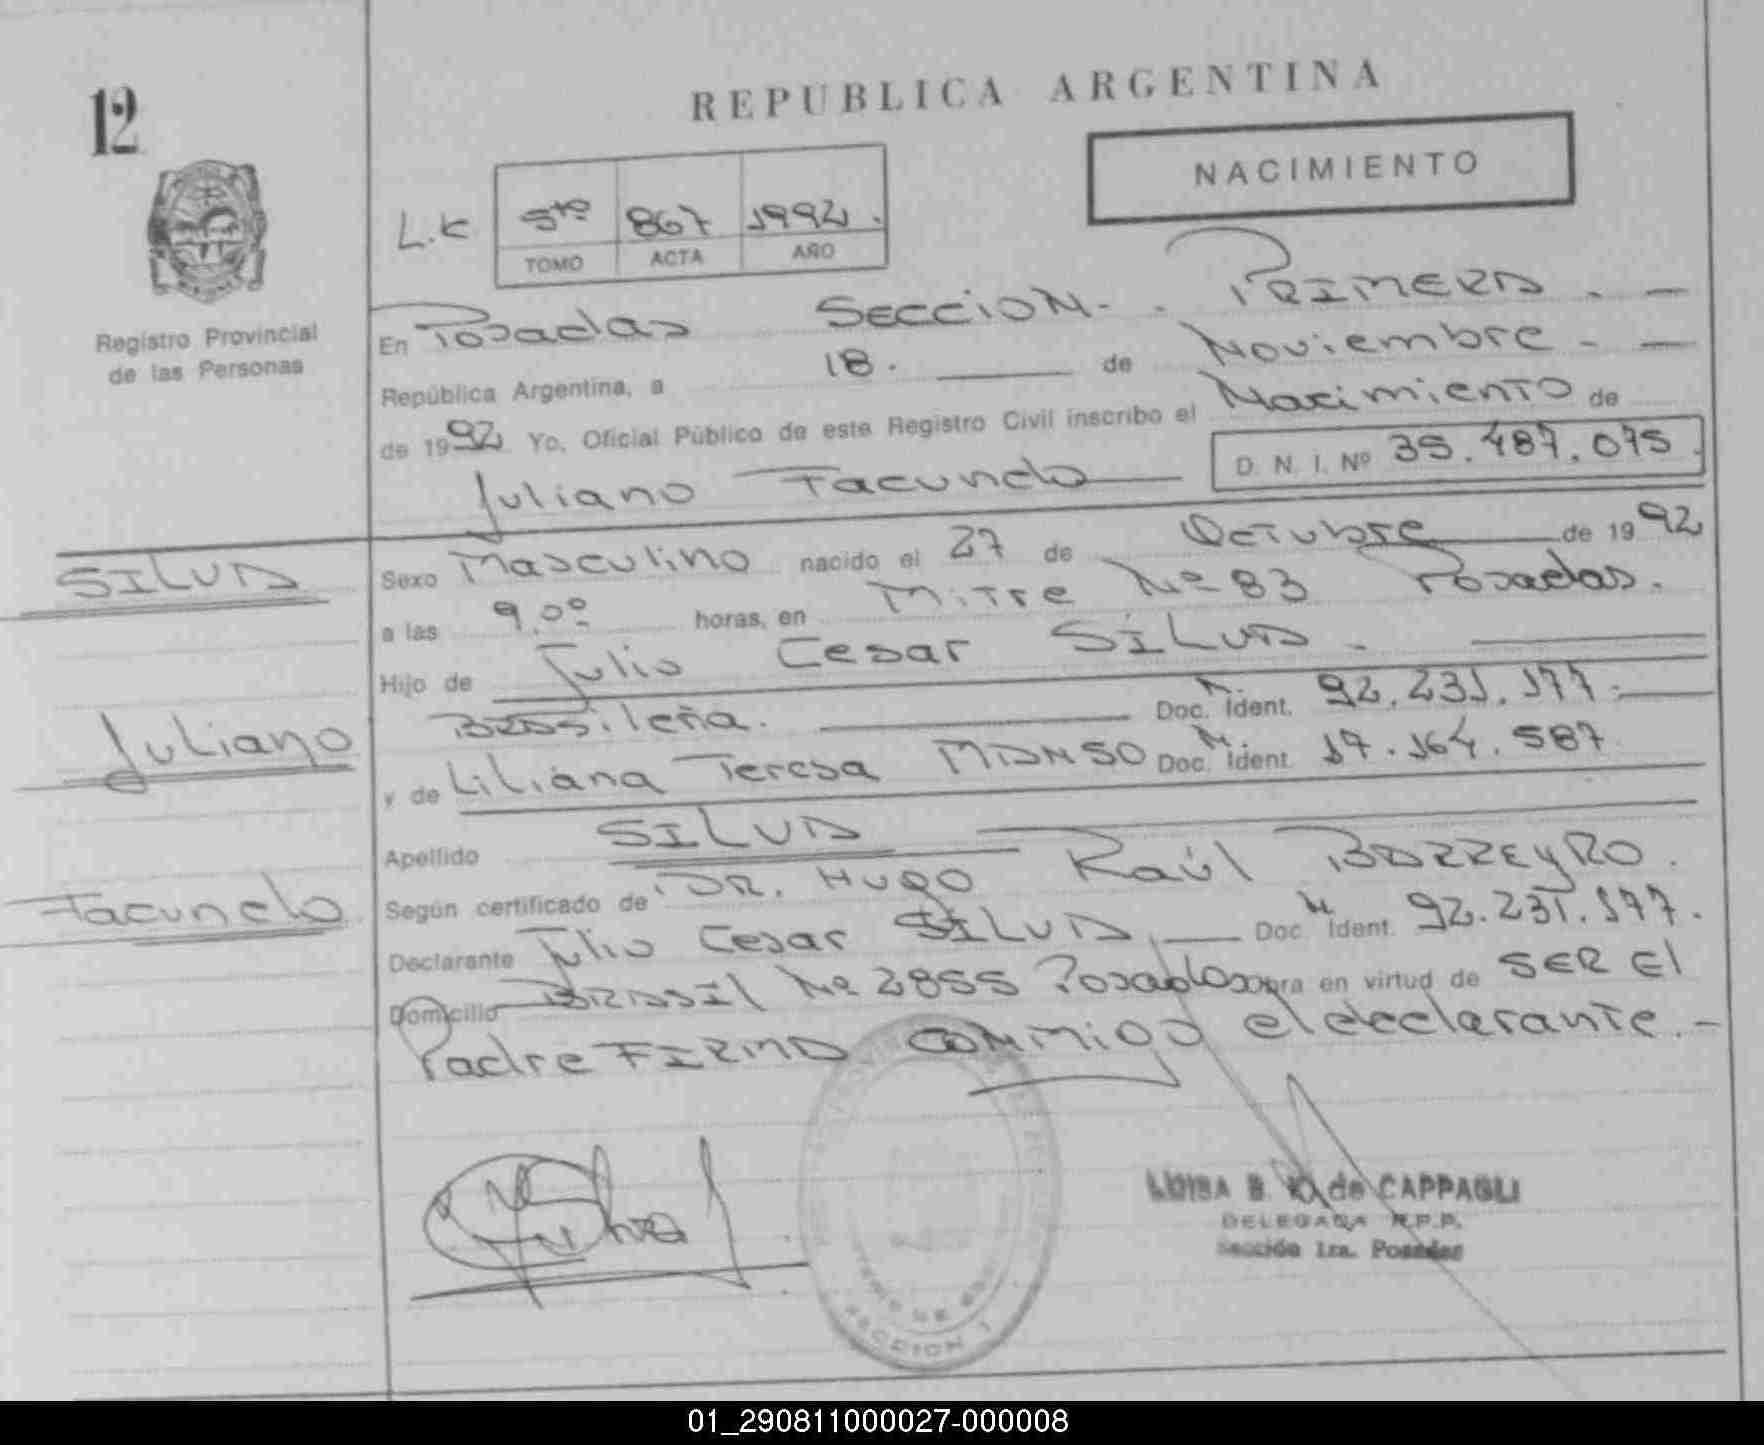 12
REPUBLICA ARGENTINA
NACIMIENTO
L.K 5to 867 1992.
TOMO ACTA AÑO
Registro Provincial
de las Personas
En Posadas SECCION. . PRIMERA . -
República Argentina, a 18. de Noviembre - -
de 1992 Yo, Oficial Público de este Registro Civil inscribo el Nacimiento de
D. N. I. Nº 35.487.075.
Juliano Facundo
SILVA
Sexo Masculino nacido el 27 de Octubre de 1992
a las 9.00 horas, en Mitre Nº 83 Posadas.
Hijo de Julio Cesar SILVA.
Juliano
Brasileña. Doc. Ident. 92.231.177.
y de Liliana Teresa MANSO Doc. Ident. 17.164.587
Apellido SILVA
Facundo
Según certificado de DR. HUGO Raúl BARREYRO.
Declarante Julio Cesar SILVA Doc. Ident. 92.231.177.
Domicilio BRASIL Nº 2855 Posadas obra en virtud de SER El
Padre FIRMA CONMIGO el declarante.-
LUISA B. de CAPPAGLI
DELEGADA R.P.P.
Sección 1ra. Posadas
SECCION 1
01_290811000027-000008